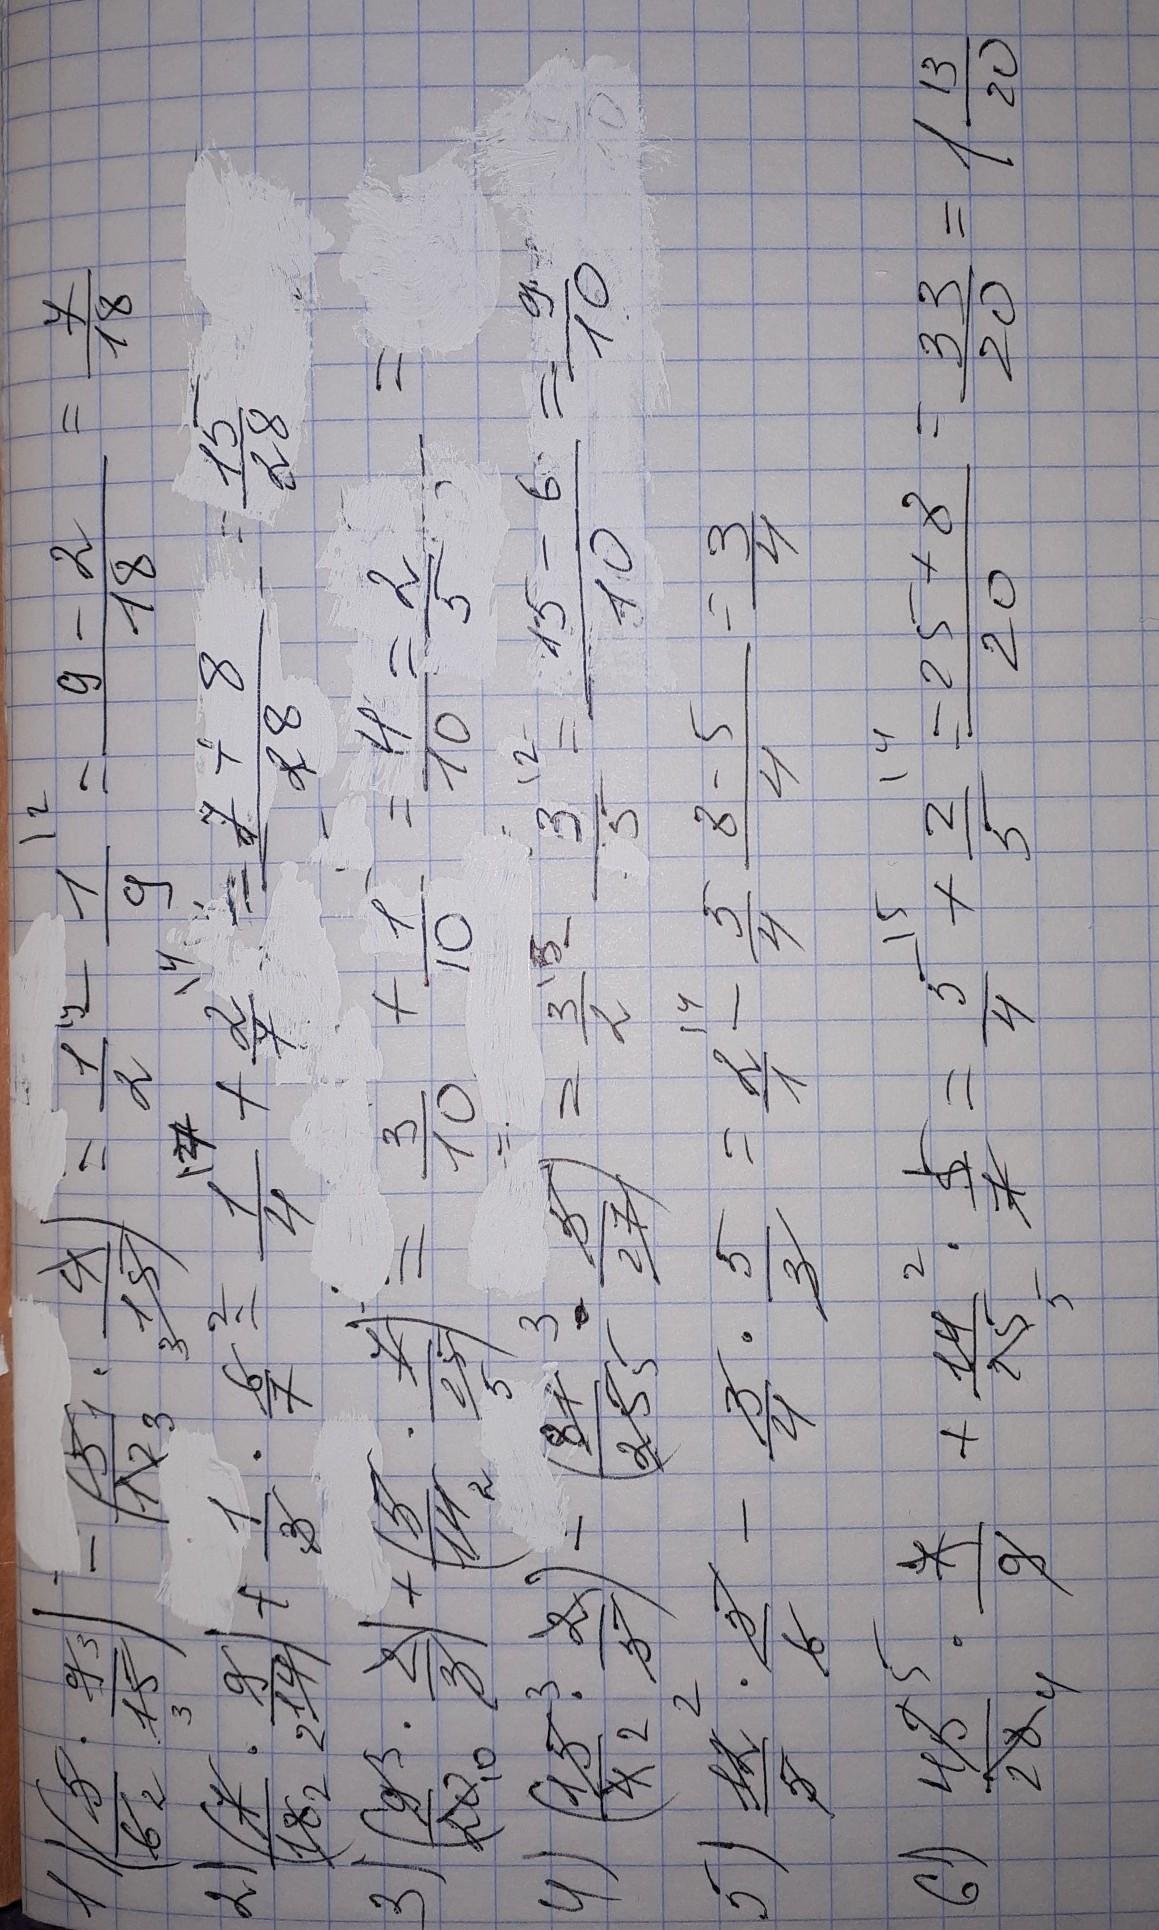 1) (5/6 2 · 9 3/15 3) - (5 1/12 3 · 4/15 3) = 1/2 \9 - 1/9 \2 = 9 - 2/18 = 7/18
2) (7/18 2 · 9/14 2) + 1/3 · 6 2/7 = 1/4 \7 + 2/7 \4 = 7 + 8/28 = 15/28
3) (9 3/20 10 · 2/3) + (5/14 2 · 7/25 5) = 3/10 + 1/10 = 4/10 = 2/5 =
4) (15 3/4 2 · 2/5) - (27 3/25 5 · 5/27) = 3/2 \5 - 3/5 \2 = 15 - 6/10 = 9/10
5) 12 2/5 · 5/6 - 3/4 · 5/3 = 2/1 \4 - 5/4 = 8 - 5/4 = 3/4
6) 45 5/28 4 · 7/9 + 14 2/25 5 · 5/7 = 5/4 \5 + 2/5 \4 = 25 + 8/20 = 33/20 = 1 13/20